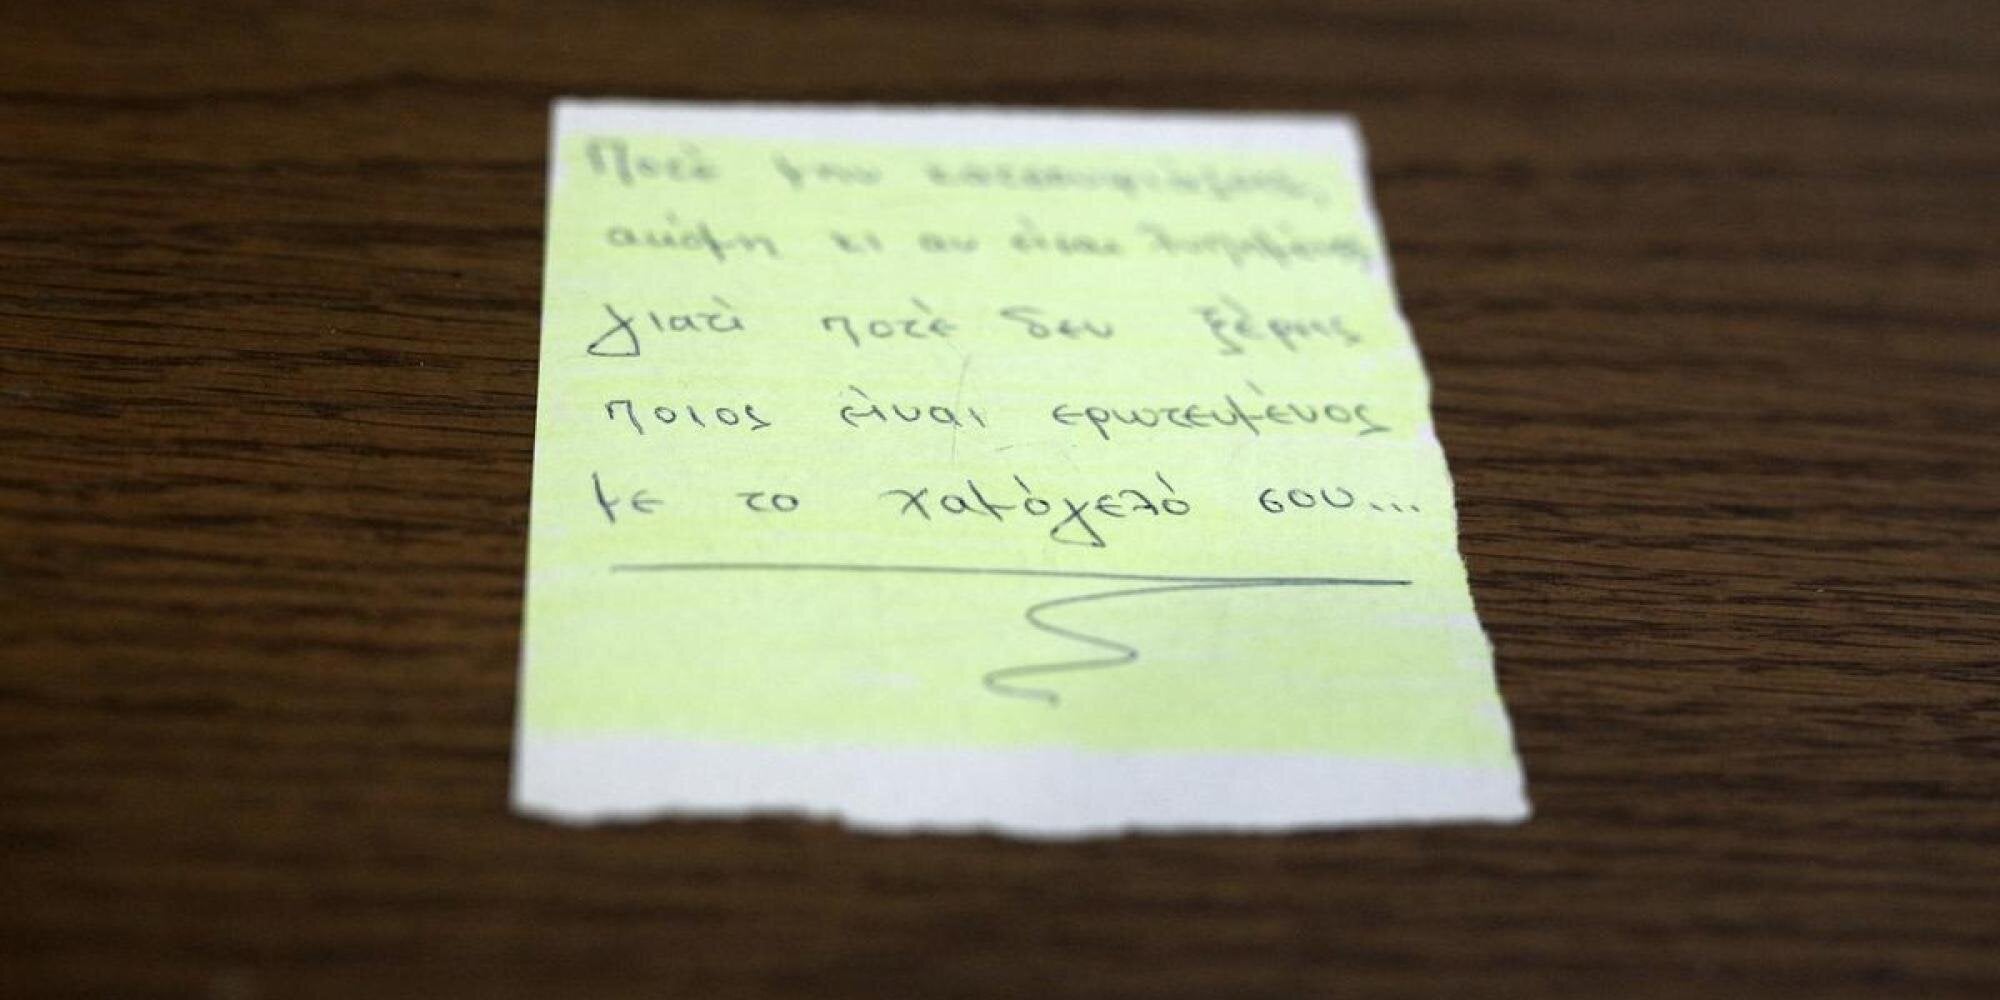 Ποτέ μην κατσουφιάζεις,
ακόμη κι αν είσαι λυπημένος
γιατί ποτέ δεν ξέρεις
ποιος είναι ερωτευμένος
με το χαμόγελό σου...